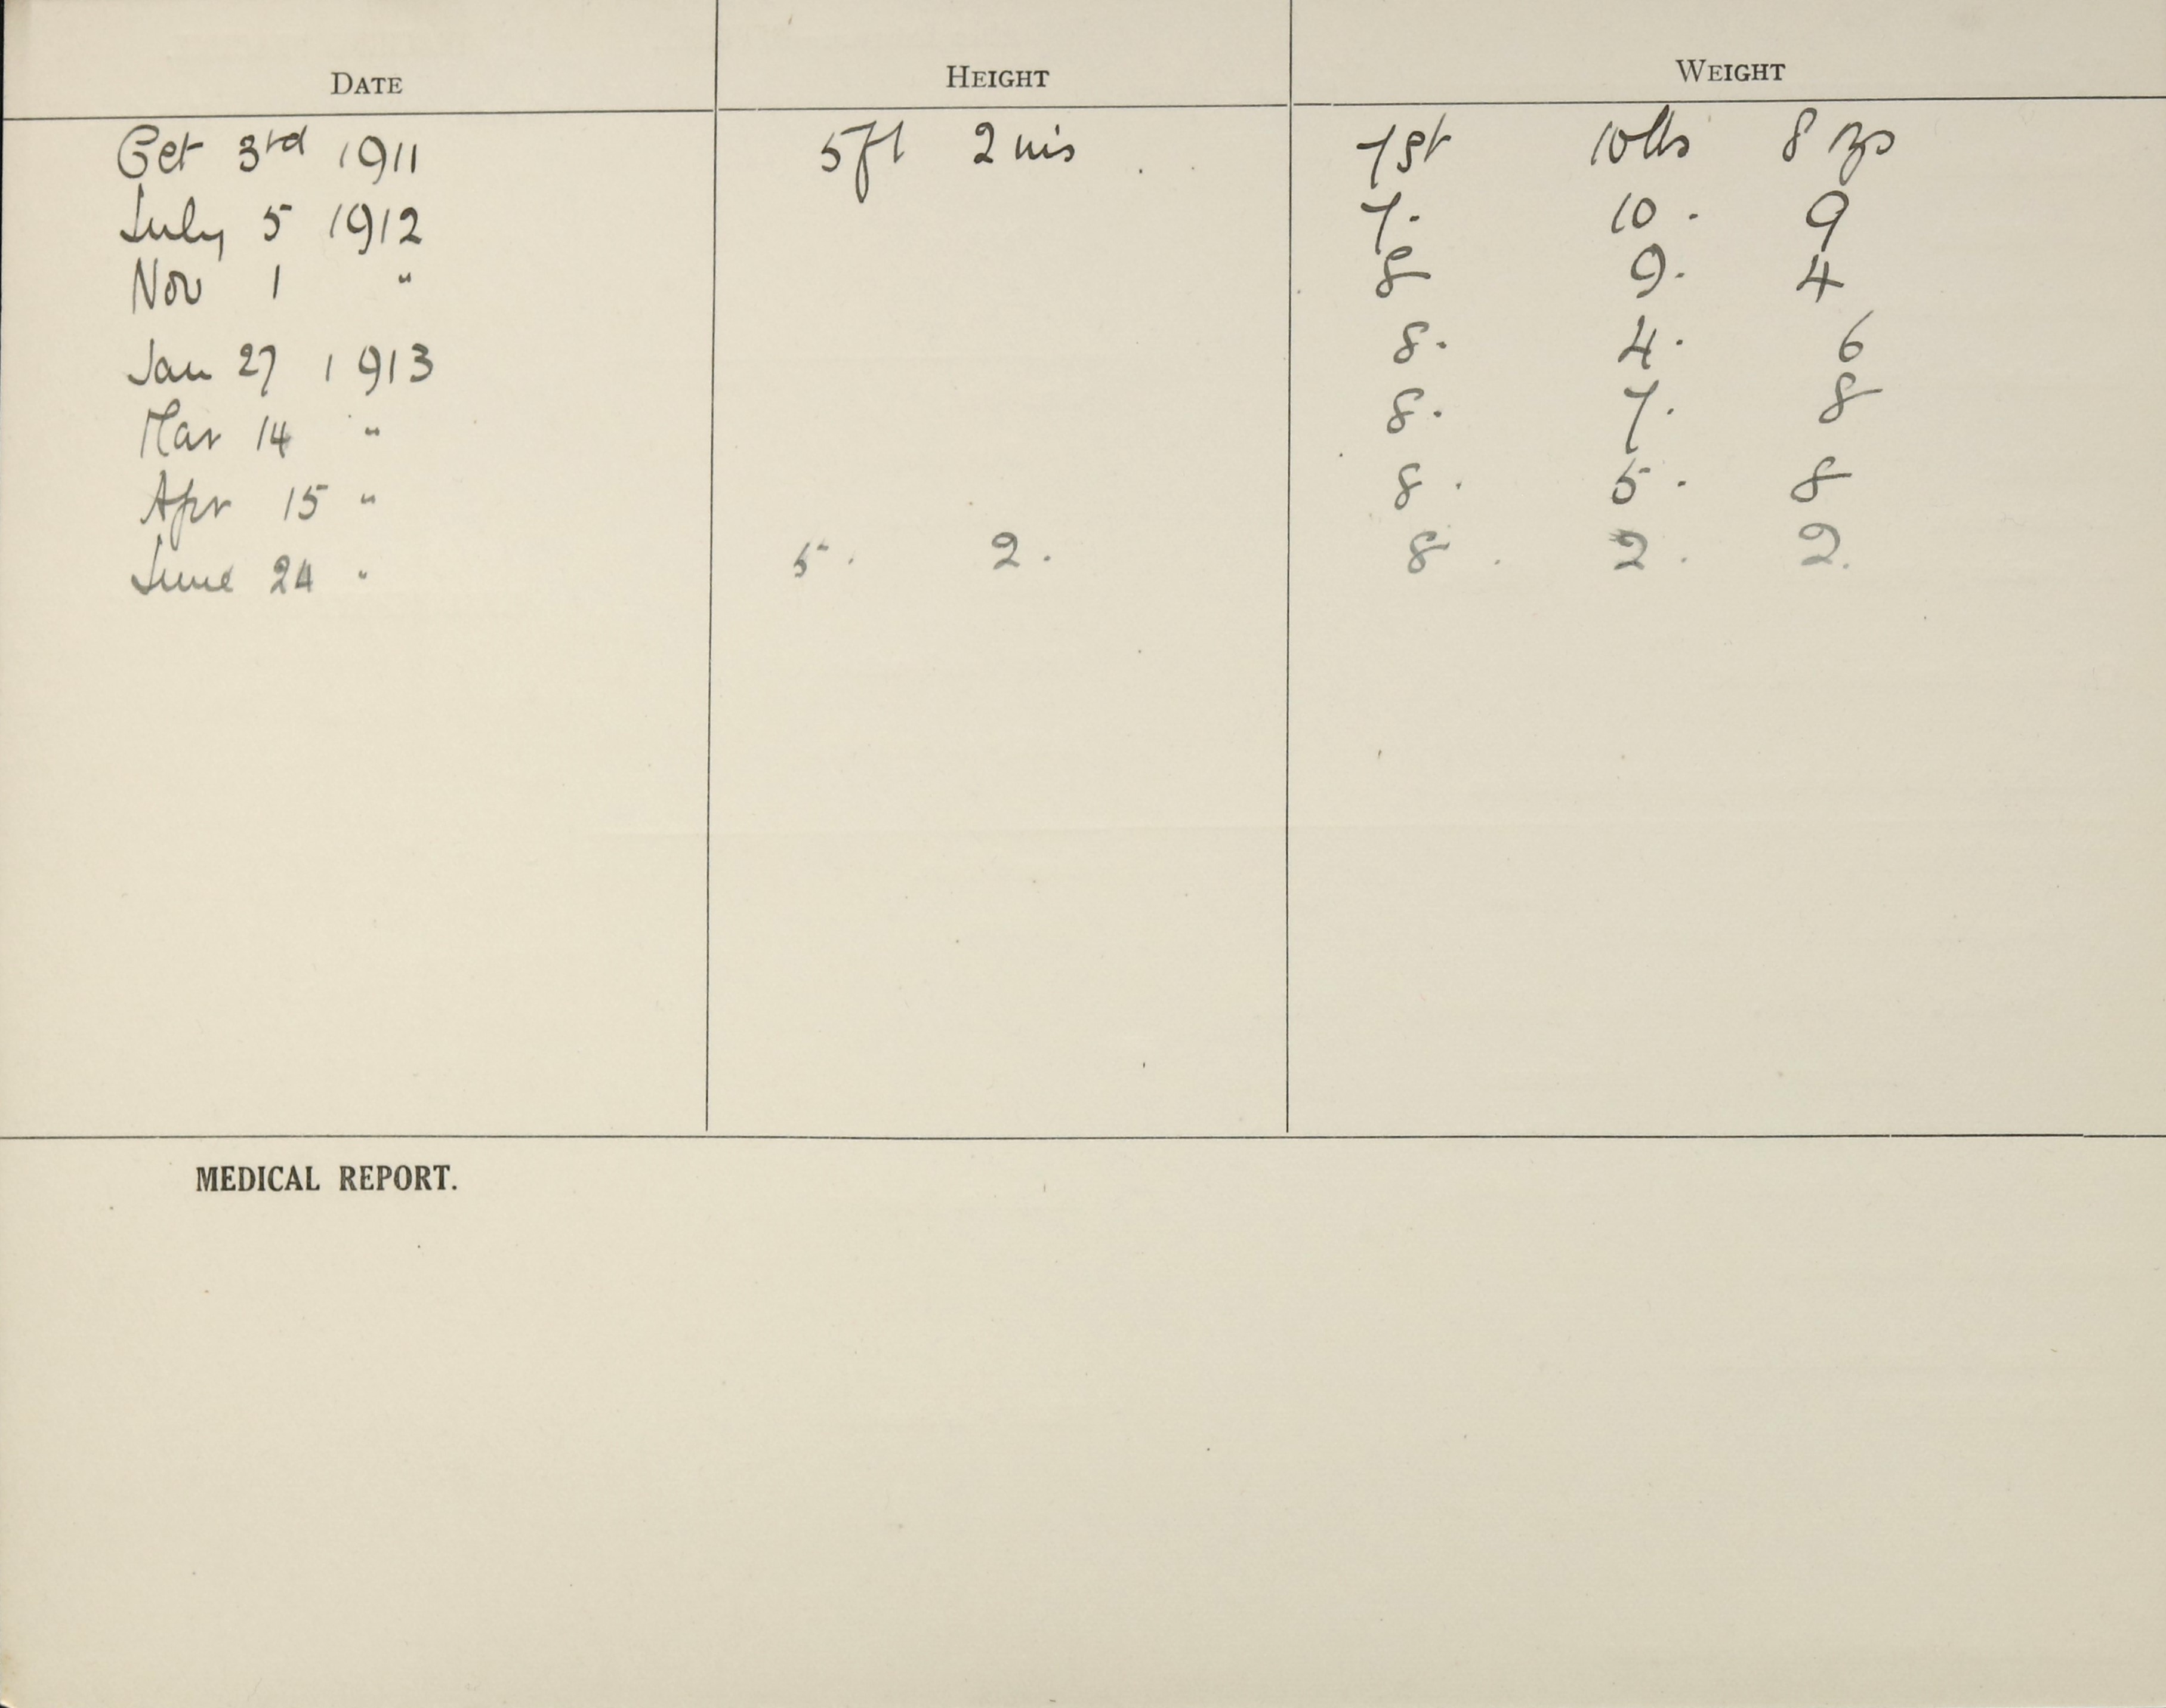 DATE HEIGHT WEIGHT
Oct 3rd 1911 5ft 2 ins 7st 10lbs 8 ozs
July 5 1912 7. 10. 9
Nov 1 " 8 9. 4
Jan 27 1913 8. 4. 6
Mar 14 " 8. 7. 8
Apr 15 " 8. 5. 8
June 24 " 5. 2. 8. 2. 2.
MEDICAL REPORT.